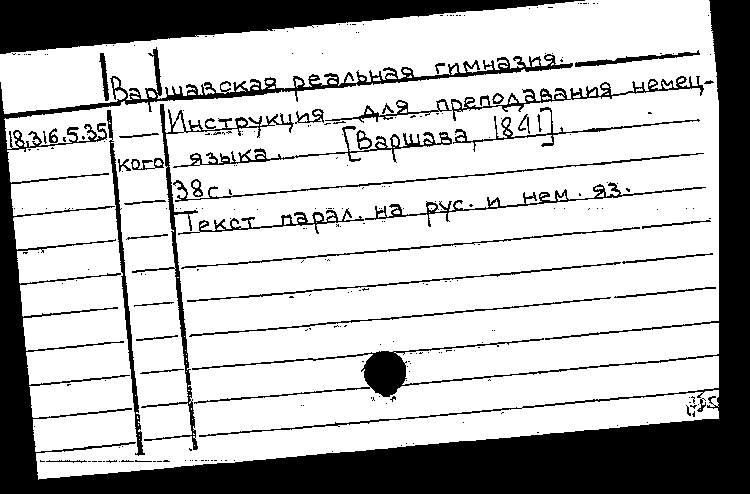 Варшавская реальная гимназия.
18.316.5.35 Инструкция для преподавания немец-
кого языка. [Варшава, 1841].
38с.
Текст парал. на рус. и нем. яз.